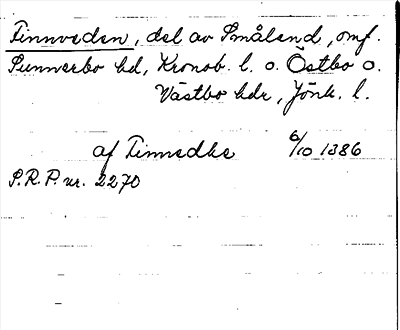 Finnveden, del av Småland, omf.
Sunnerbo hd, Kronob. l. o. Östbo o.
Västbo hdr, Jönk. l.
af Finnedhe 6/10 1386
S.R.P. nr. 2270